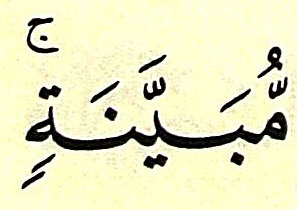 مُّبَيَّنَةٍۚ